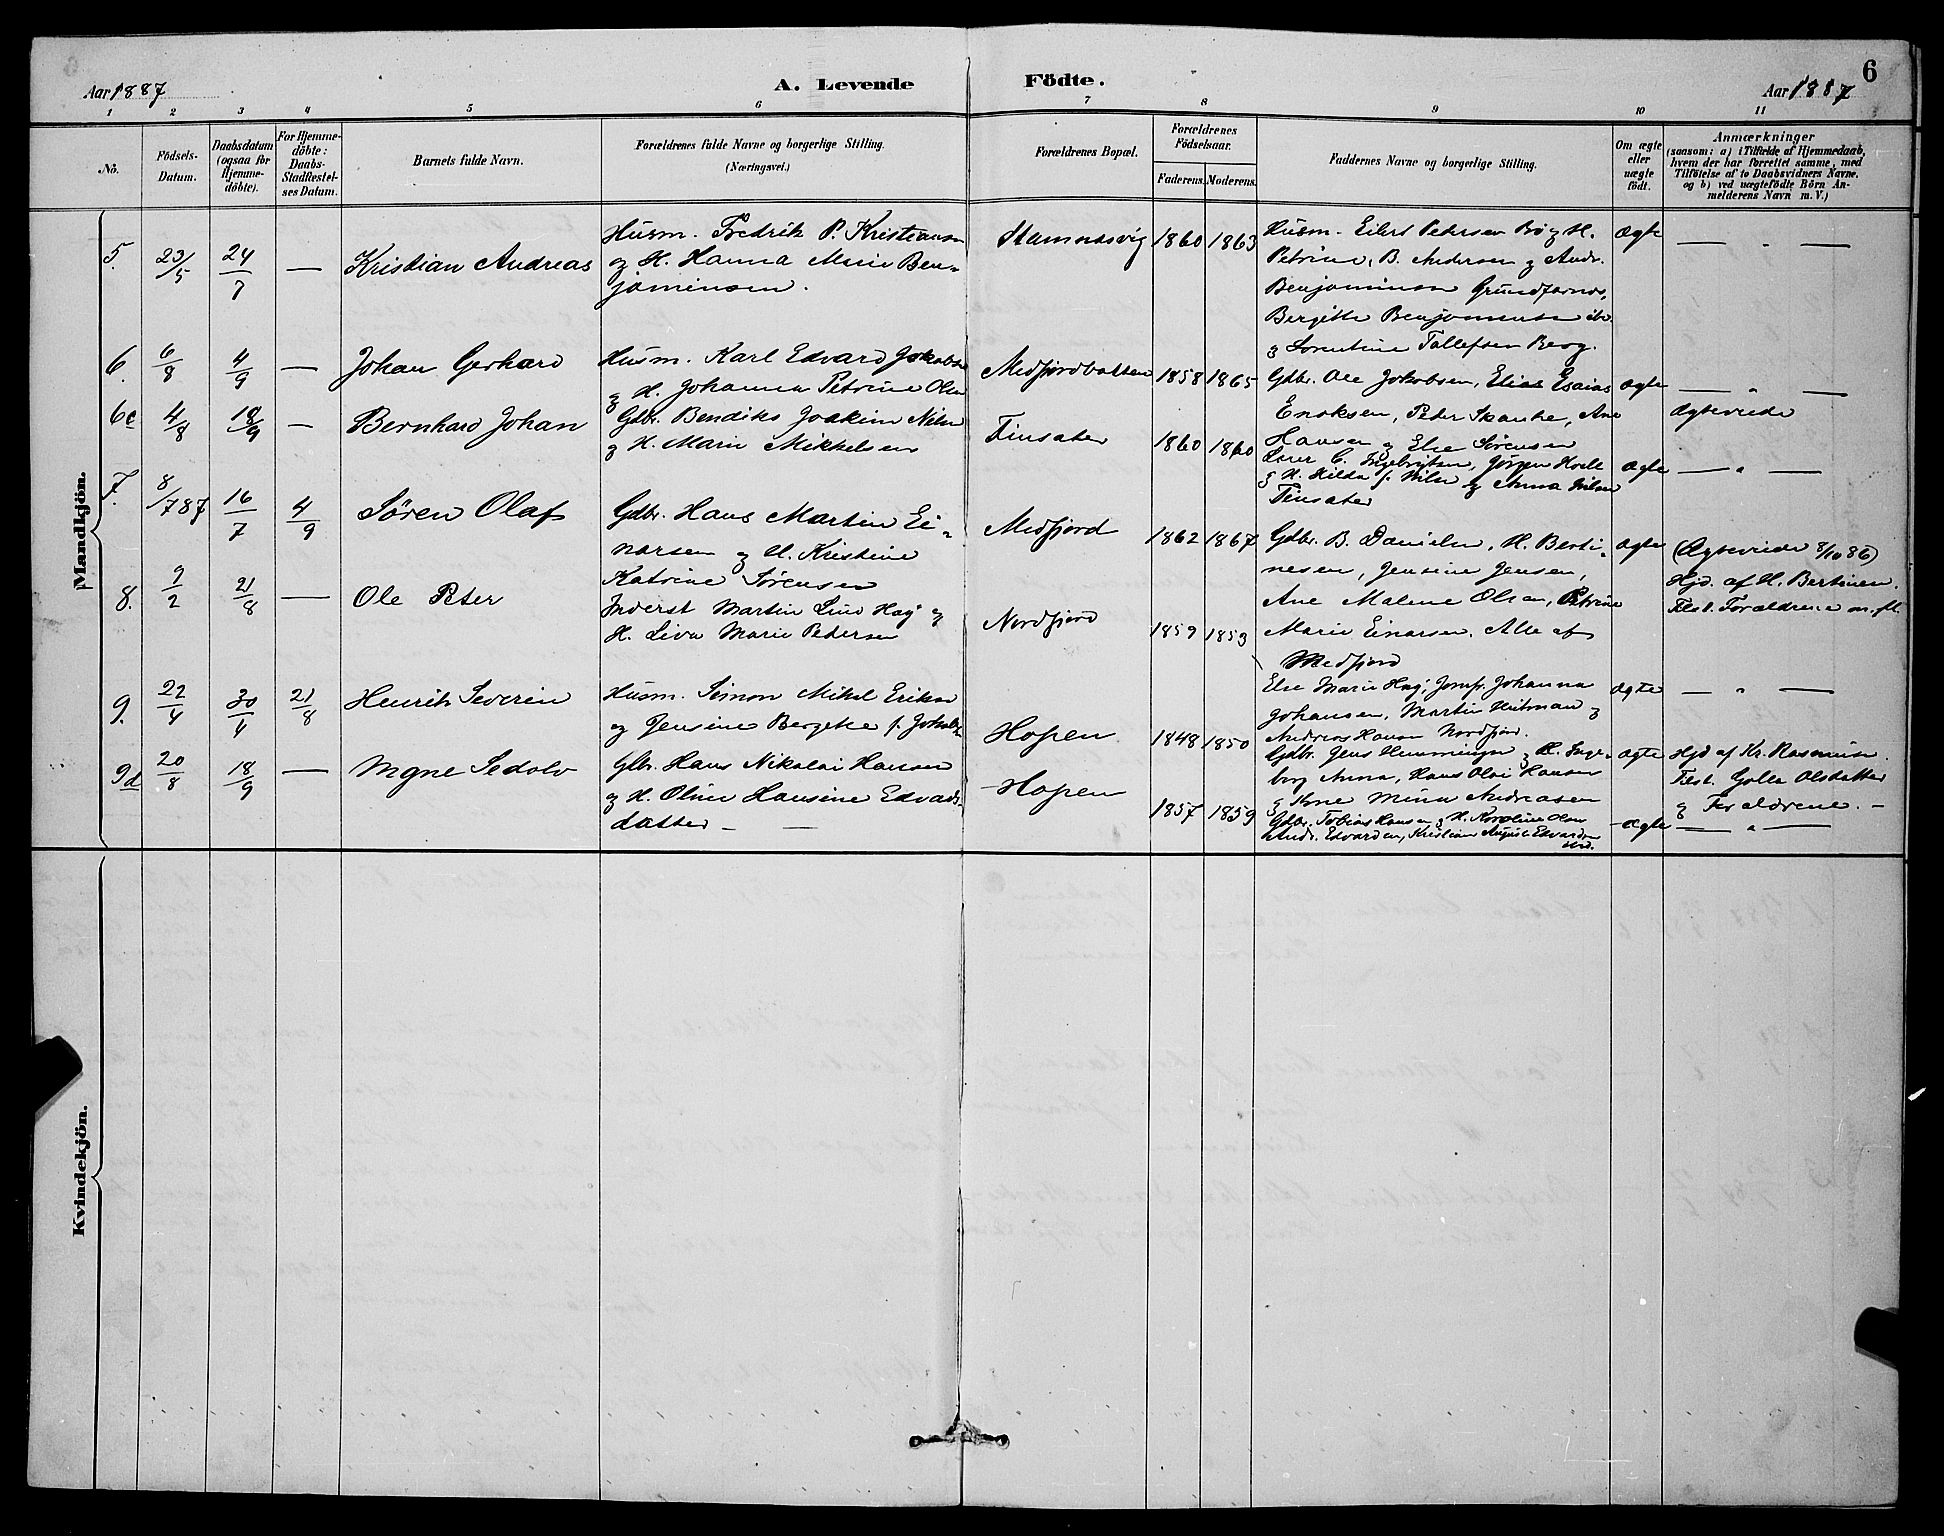 6
Aar 1887
A. Levende Födte.
Aar 1887
1 2 3 4 5 6 7 8 9 10 11
No.
Födsels-
Datum.
Daabsdatum
(ogsaa for
Hjemme-
döbte).
For Hjemme-
döbte:
Daabs-
Stadfæstel-
ses Datum.
Barnets fulde Navn.
Forældrenes fulde Navne og borgerlige Stilling.
(Næringsvei.)
Forældrenes Bopæl.
Forældrenes
Födselsaar.
Faderens. Moderens.
Faddernes Navne og borgerlige Stilling.
Om ægte
eller
uægte
født.
Anmærkninger
(saasom: a) i Tilfælde af Hjemmedaab,
hvem der har forrettet samme, med
Tilføielse af to Daabsvidners Navne.
og b) ved uægtefödte Börn An-
melderens Navn m. V.)
Mandkjön.
5. 23/5 24/7 — Kristian Andreas
Husm. Fredrik P. Kristiansen
og H. Hanna Marie Ben-
jaminsen.
Stamnesvig 1860 1863
Husm. Eilert Petersen Bø og H.
Petrine, B. Andersen og Andr.
Benjaminsen Grundfarnes,
Bergitte Benjaminsen ibd.
og Lorentine Tollefsen Berg.
ægte — " —
6. 6/8 4/9 — Johan Gerhard
Husm. Karl Edvard Jakobsen
og H. Johanna Petrine Olsen
Medfjordbotten 1858 1865
Gdbr. Ole Jakobsen, Elias Esaias
Enoksen, Peter Skanke, Ane
Hansen og Else Sørensen
ægte — " —
Ægteviede
6c 4/8 18/9 — Bernhard Johan
Gdbr. Bendiks Joakim Nilsen
og H. Marie Mikkelsen
Finsæter 1860 1860
C. Ingebrigtsen, Jørgen
og H. Hilda f. Nilsen og Anna Nilsen
Finsæter
ægte — " —
7. 8/7 87 16/7 4/9 Søren Olaf
Gdbr. Hans Martin Ei-
narsen og H. Kristine
Katrine Sørensen
Medfjord 1862 1867
Gdbr. B. Danielsen, H. Berti-
nesen, Jensine Jensen,
Ane Malene Olsen, Petrine
Marie Einarsen. Alle af
Medfjord
ægte (Ægteviede 8/10 86)
Hjd. af H. Bertinesen.
Test. Forældrene m. fl.
8. 9/2 21/8 — Ole Peter
Inderst Martin Lind Høg og
H. Liva Marie Pedersen
Nordfjord 1859 1859
Else Marie Høg, Jomfr. Johanna
Johansen, Martin Heitman og
Andreas Hansen Nordfjord.
ægte — " —
9. 22/4 30/4 21/8 Henrik Severin
Husm. Simon Mikal Eriksen
og Jensine Bergitte f. Jakobsen
Hopen 1848 1850
Gdbr. Jens Hemmingsen og H. Inge-
borg Anna, Hans Olai Hansen
og Mina Andreasen
ægte Hjd af Kr. Rasmusen.
Test. Golla Olsdatter
og Forældrene. —
9d 20/8 18/9 — Magne Sedolv
Gbr. Hans Nikolai Hansen
og H. Oline Hansine Edvards-
datter — —
Hopen 1857 1859
Gdbr. Tobias Hansen og H. Karoline Olsen
Andr. Edvardsen, Kristiane Auguste Edvardsen
ibd.
ægte — " —
Kvindekjön.